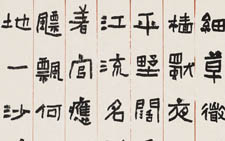 細草微
檣獨夜
平墅闊
江流名
著官應
飄飄何
地一沙